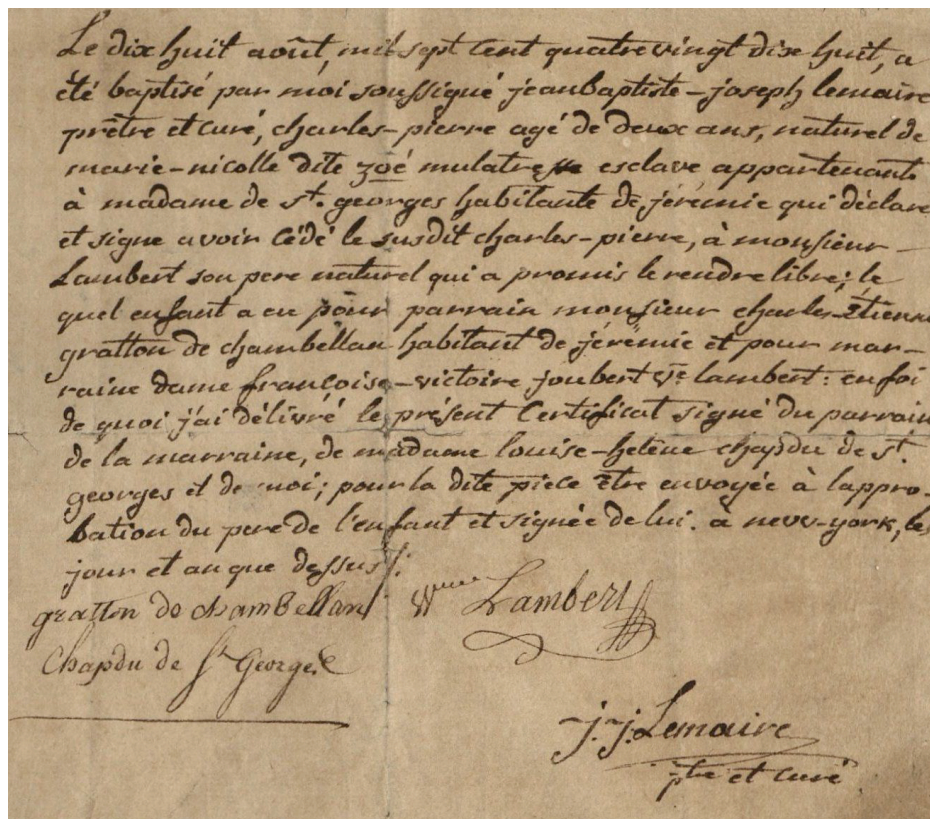 Le dix huit août, mil sept cent quatre vingt dix huit, a
été baptisé par moi soussigné jeanbaptiste-joseph lemaire
prêtre et curé, charles-pierre agé de deux ans, naturel de
marie-nicolle dite zoé mulatresse esclave appartenante
à madame de st. georges habitante de jérémie qui déclare
et signe avoir cédé le susdit charles-pierre, à monsieur
Lambert son pere naturel qui a promis le rendre libre; le
quel enfant a eu pour parrain monsieur charles-Étienne
gratton de chambellan habitant de jérémie et pour mar-
raine dame françoise-victoire joubert ve. lambert: en foi
de quoi j'ai délivré le présent Certificat signé du parrain
de la marraine, de madame louise-helène chapdu de st.
georges et de moi; pour la dite piece Être envoyée à lappro-
bation du pere de l'enfant et signée de lui. à new-york, les
jour et an que dessus/.
gratton de chambellan Lambert
Chapdu de St George
j. j. Lemaire
ptre et curé